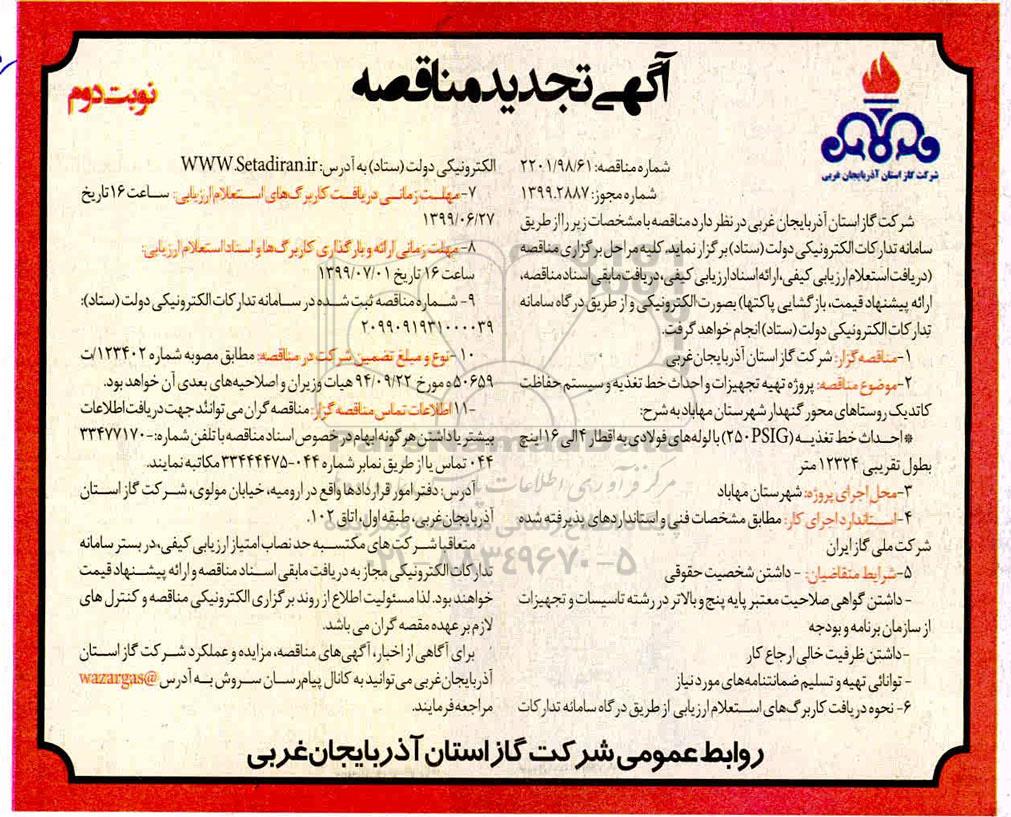 آگهی تجدید مناقصه
نوبت دوم
شرکت گاز استان آذربایجان غربی
شماره مناقصه: ۲۲۰۱/۹۸/۶۱
شماره مجوز: ۱۳۹۹.۲۸۸۷
شرکت گاز استان آذربایجان غربی در نظر دارد مناقصه با مشخصات زیر را از طریق
سامانه تدارکات الکترونیکی دولت (ستاد) برگزار نماید. کلیه مراحل برگزاری مناقصه
(دریافت استعلام ارزیابی کیفی، ارائه اسناد ارزیابی کیفی، دریافت مابقی اسناد مناقصه،
ارائه پیشنهاد قیمت، بازگشایی پاکتها) بصورت الکترونیکی و از طریق درگاه سامانه
تدارکات الکترونیکی دولت (ستاد) انجام خواهد گرفت.
۱- مناقصه گزار: شرکت گاز استان آذربایجان غربی
۲- موضوع مناقصه: پروژه تهیه تجهیزات و احداث خط تغذیه و سیستم حفاظت
کاتدیک روستاهای محور گنهدار شهرستان مهاباد به شرح:
* احداث خط تغذیه (۲۵۰ PSIG) با لوله های فولادی به اقطار ۴ الی ۱۶ اینچ
بطول تقریبی ۱۲۳۲۴ متر
۳- محل اجرای پروژه: شهرستان مهاباد
۴- استاندارد اجرای کار: مطابق مشخصات فنی و استانداردهای پذیرفته شده
شرکت ملی گاز ایران
۵- شرایط متقاضیان: - داشتن شخصیت حقوقی
- داشتن گواهی صلاحیت معتبر پایه پنج و بالاتر در رشته تاسیسات و تجهیزات
از سازمان برنامه و بودجه
- داشتن ظرفیت خالی ارجاع کار
- توانائی تهیه و تسلیم ضمانتنامه های مورد نیاز
۶- نحوه دریافت کاربرگ های استعلام ارزیابی از طریق درگاه سامانه تدارکات
الکترونیکی دولت (ستاد) به آدرس: WWW.Setadiran.ir
۷- مهلت زمانی دریافت کاربرگ های استعلام ارزیابی: ساعت ۱۶ تاریخ
۱۳۹۹/۰۶/۲۷
۸- مهلت زمانی ارائه و بارگذاری کاربرگ ها و اسناد استعلام ارزیابی:
ساعت ۱۶ تاریخ ۱۳۹۹/۰۷/۰۱
۹- شماره مناقصه ثبت شده در سامانه تدارکات الکترونیکی دولت (ستاد):
۲۰۹۹۰۹۱۹۳۱۰۰۰۰۳۹
۱۰- نوع و مبلغ تضمین شرکت در مناقصه: مطابق مصوبه شماره ۱۲۳۴۰۲/ت
۵۰۶۵۹ه مورخ ۹۴/۰۹/۲۲ هیات وزیران و اصلاحیه های بعدی آن خواهد بود.
۱۱- اطلاعات تماس مناقصه گزار: مناقصه گران می توانند جهت دریافت اطلاعات
بیشتر یا داشتن هر گونه ابهام در خصوص اسناد مناقصه با تلفن شماره: ۳۳۴۷۷۱۷۰-
۰۴۴ تماس یا از طریق نمابر شماره ۰۴۴-۳۳۴۴۴۴۷۵ مکاتبه نمایند.
آدرس: دفتر امور قراردادها واقع در ارومیه، خیابان مولوی، شرکت گاز استان
آذربایجان غربی، طبقه اول، اتاق ۱۰۲.
متعاقبا شرکت های مکتسبه حد نصاب امتیاز ارزیابی کیفی، در بستر سامانه
تدارکات الکترونیکی مجاز به دریافت مابقی اسناد مناقصه و ارائه پیشنهاد قیمت
خواهند بود. لذا مسئولیت اطلاع از روند برگزاری الکترونیکی مناقصه و کنترل های
لازم بر عهده مقصه گران می باشد.
برای آگاهی از اخبار، آگهی های مناقصه، مزایده و عملکرد شرکت گاز استان
آذربایجان غربی می توانید به کانال پیام رسان سروش به آدرس @wazargas
مراجعه فرمایند.
روابط عمومی شرکت گاز استان آذربایجان غربی
ParsNamadData
۰۲۱-۸۸۳۴۹۶۷۰-۵